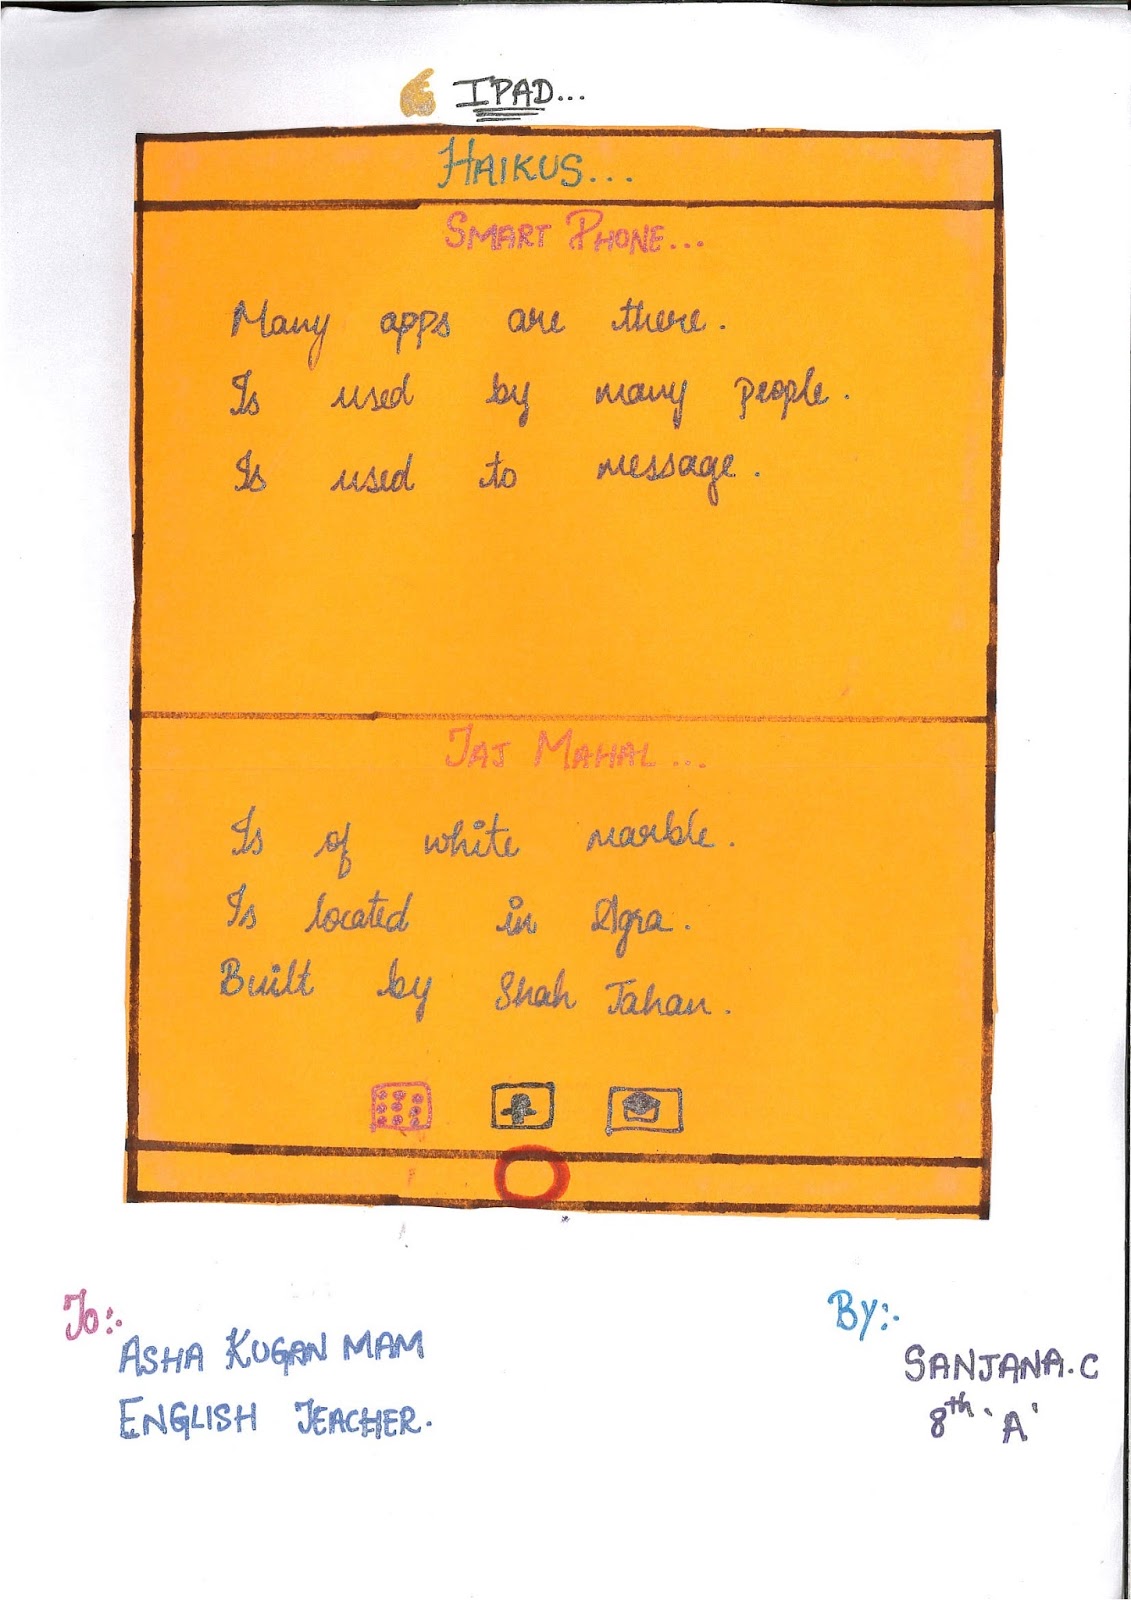 IPAD...
HAIKUS...
SMART PHONE...
Many apps are there.
Is used by many people.
Is used to message.
TAJ MAHAL...
Is of white marble.
Is located in Agra.
Built by Shah Jahan.
To:-
ASHA KUGAN MAM
ENGLISH TEACHER.
By:-
SANJANA.C
8th 'A'